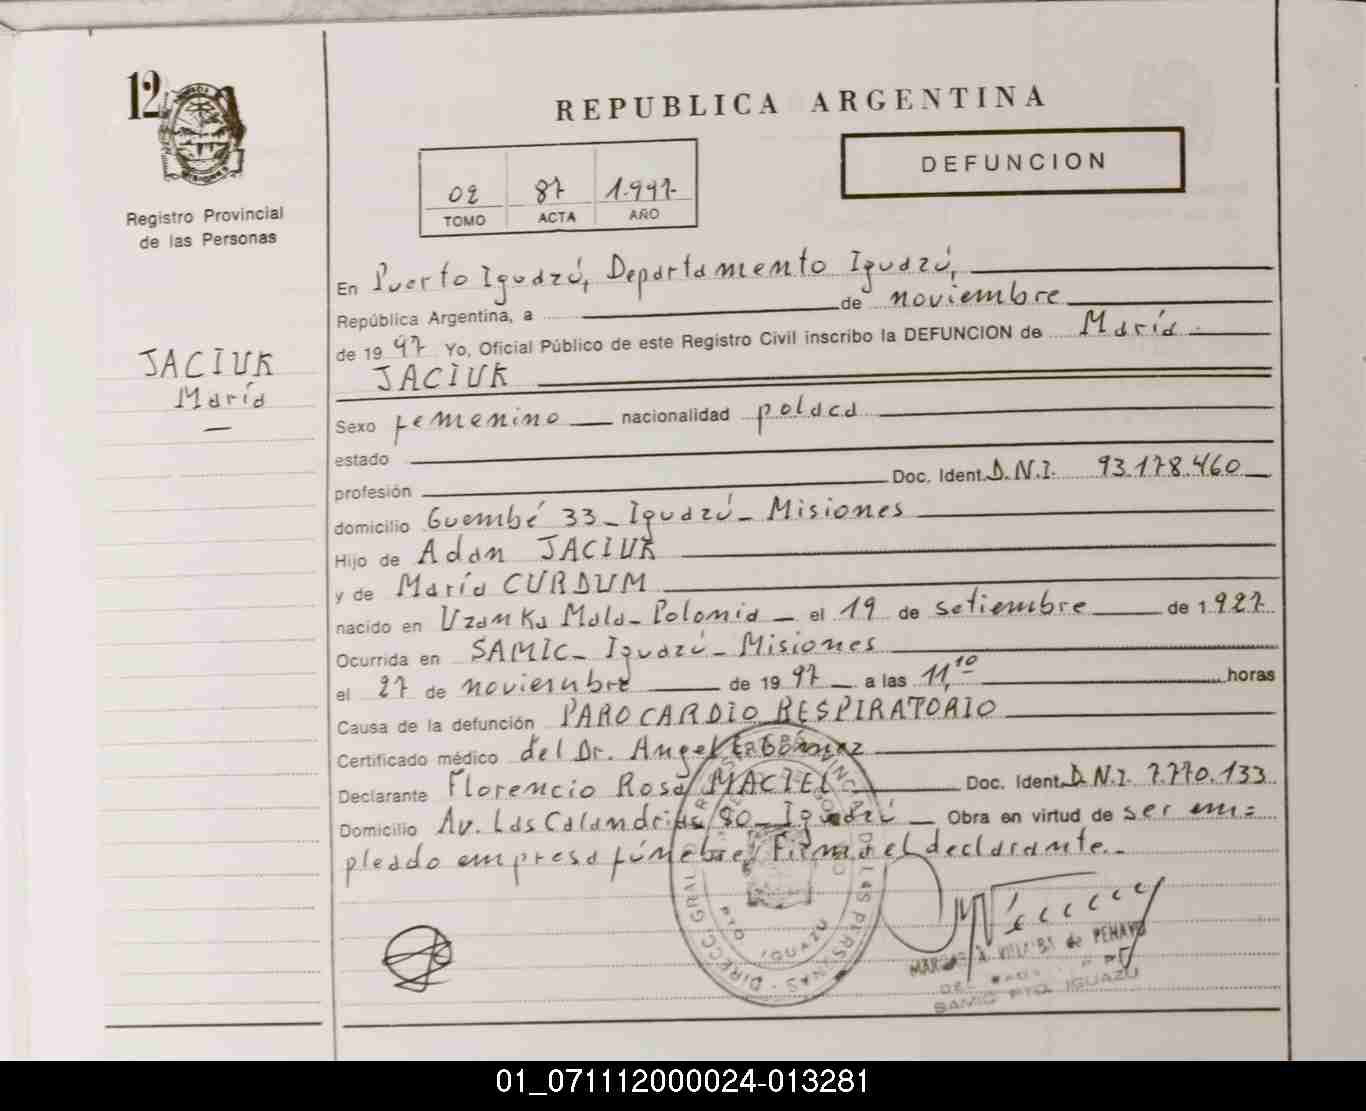 12
REPUBLICA ARGENTINA
DEFUNCION
02 87 1.997-
TOMO ACTA AÑO
MISIONES
Registro Provincial
de las Personas
JACIUK
María
En Puerto Iguazú, Departamento Iguazú,
República Argentina, a de noviembre
de 19 97 Yo, Oficial Público de este Registro Civil inscribo la DEFUNCION de María
JACIUK
Sexo femenino nacionalidad polaca
estado
profesión Doc. Ident. D.N.I. 93.178.460
domicilio Guembé 33 - Iguazú - Misiones
Hijo de Adan JACIUK
y de María CURDUM
nacido en Uzanka Mala - Polonia - el 19 de setiembre de 1 927
Ocurrida en SAMIC - Iguazú - Misiones
el 27 de noviembre de 19 97 a las 11,10 horas
Causa de la defunción PARO CARDIO RESPIRATORIO
Certificado médico del Dr. Angel
Declarante Florencio Rosa MACIEL Doc. Ident. D.N.I. 7.770.133
Domicilio Av. Las Calandrias 80 - Iguazú - Obra en virtud de ser em=
pleado empresa fúnebre. Firma el declarante.-
DIRECC. GRAL DE LAS PERSONAS
PTO IGUAZU
de PENAYO
SAMIC PTO. IGUAZU
01_071112000024-013281